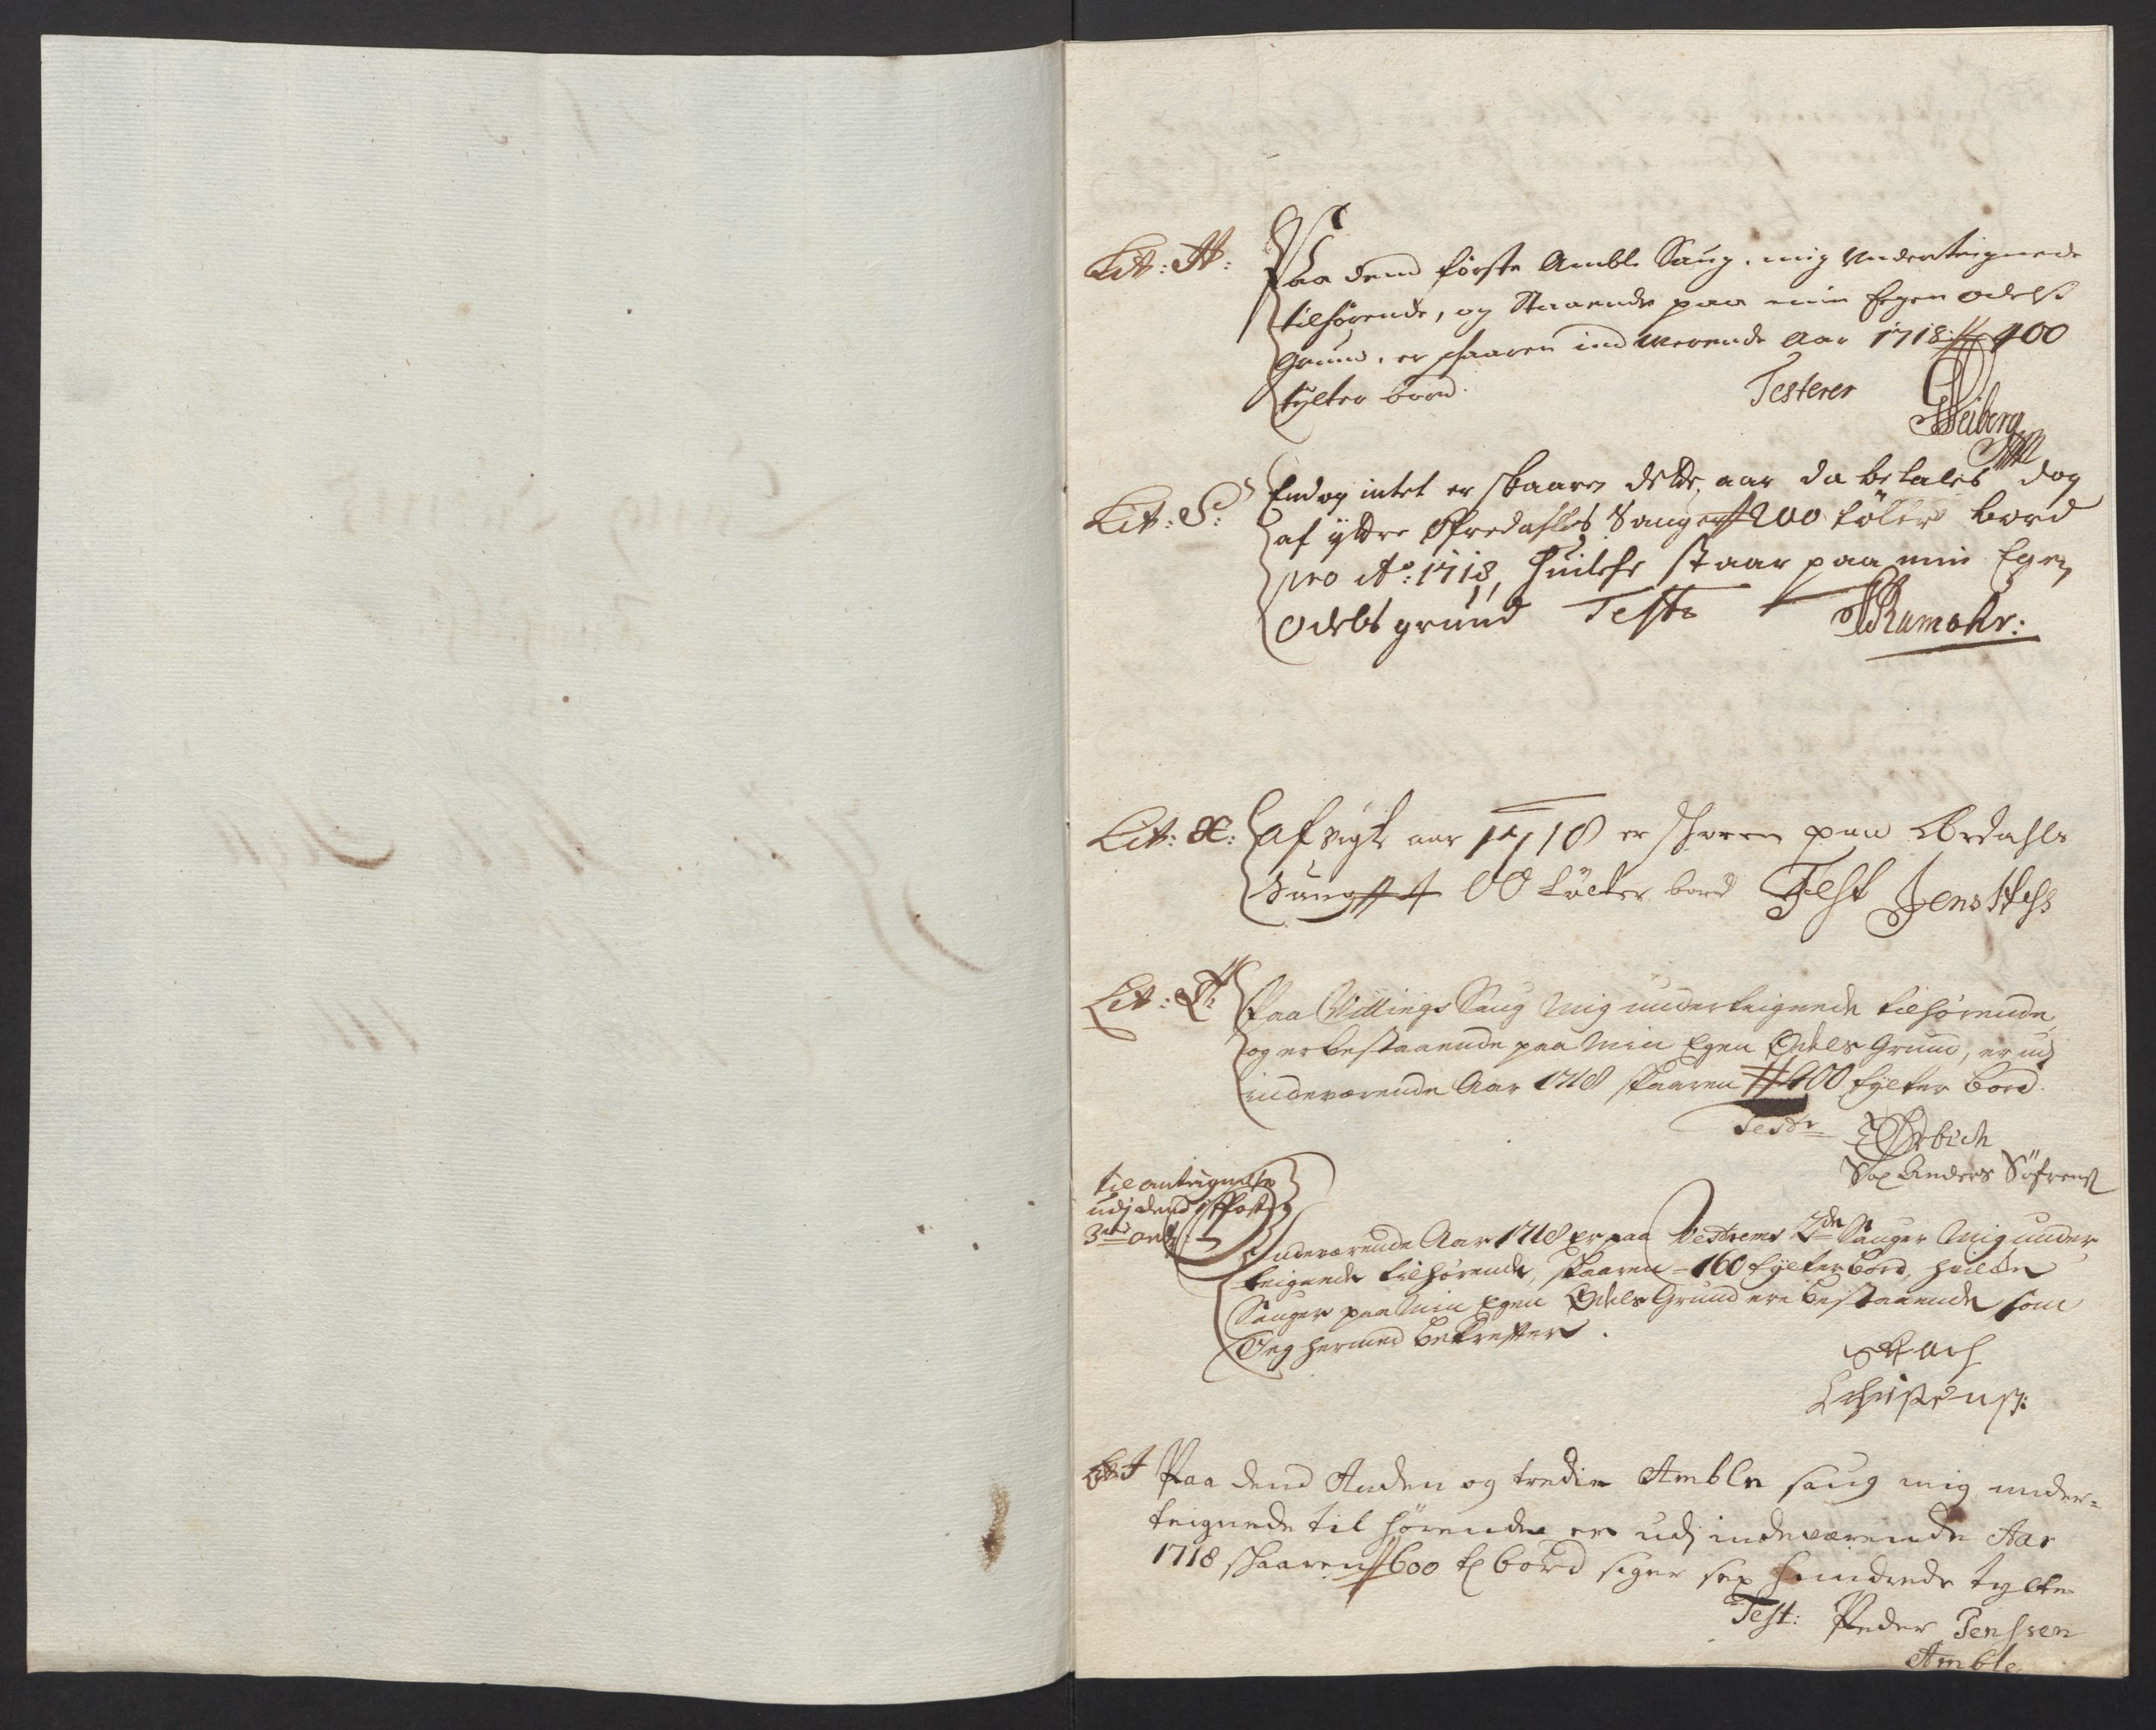 Lit: A:
Paa dend første Amble Saug, mig Underteignede
tilhørende, og Staaende paa min Egen odels
Grund, er skaaren ind werende Aar 1718 # 400
tylter bord.
Testerer
GHeiberg
Lit: S:
Endog intet er skaaren dette aar da betales dog
af yttre Ofredahls Sauger # 200 tölter bord
pro Ao: 1718, huilche staar paa min Egen
odels grund Teste
Rumohr:
Lit: Æ:
Afvigte aar 1718 er skaaren paa Ardahls
Saug # 4 00 tölter bord Test Jens
Lit:
Paa Villings Saug Mig underteignede tilhørende,
og er bestaaende paa Min Egen Odels Grund, er udj
indeværende Aar 1718 skaaren # 400 tylter bord.
Teste
Sal Anders Söfrens
til anteignelse
udj dend Post
3die
Indeværende Aar 1718 er paa Vestrems 2de Sauger Mig under
teignede tilhørende, skaaren - 160 tylter bord, huilche
Sauger paa Min Egen Odels Grund ere bestaaende som
Jeg hermed bekrefter.
Lit J
Paa dend Anden og tredie Amble saug mig under=
teignede til hørende er udj indeværende Aar
1718 skaaren # 600 t bord siger sex hundrede tylte
Test: Peder Jenssen
Amble